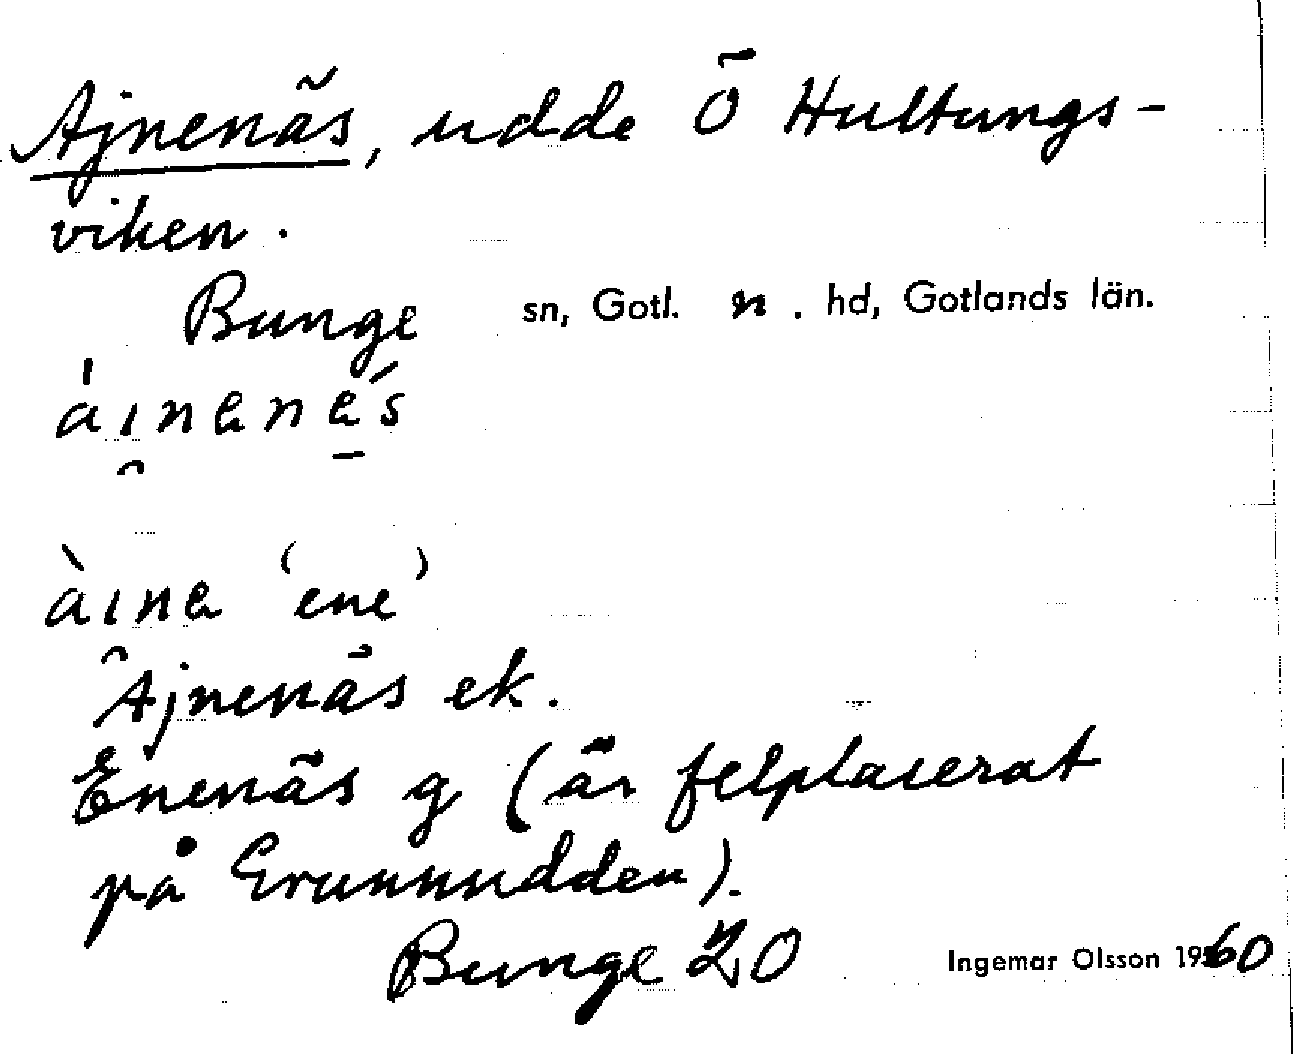 Ajnenäs, udde Ö Hultungs-
viken.
Bunge sn, Gotl. n. hd, Gotlands län.
a̍ı̯nenḛ́s
àı̯ne 'ene'
Ajnenäs ek.
Enenäs g (är felplacerat
på Grunnudden).
Bunge 20 Ingemar Olsson 1960